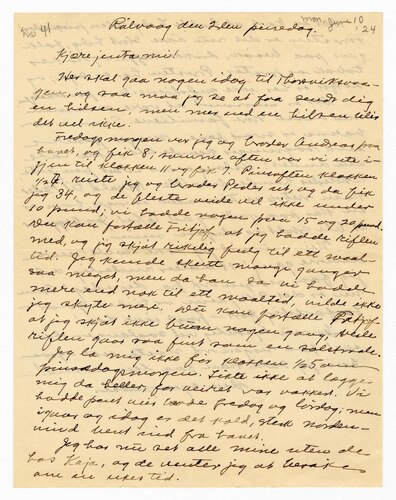 41
mon. June 10
'24
Rölvaag den 2den pinsedag.
Kjære jenta mi!
Her skal gaa nogen idag til Thorviksvaa-
gen, og saa maa jeg se at faa sendt dig
en hilsen, men mer end en hilsen blir
det vel ikke.
Fredagsmorgen var jeg og broder Andreas paa
havet, og fik 8; samme aften var vi ute i-
gjen til klokken 11 og fik 7. Pinseaften klokken
reiste jeg og broder Peder ut, og da fik
jeg 34, og de fleste veide vel ikke under
10 pund; vi hadde nogen paa 15 og 20 pund.
Du kan fortælle at jeg hadde riflen
med, og jeg skjøt rikelig fugl til ett maal-
tid. Jeg kunde skutt mange ganger
saa meget, men da han sa vi hadde
mere end nok til ett maaltid, vilde ikke
jeg skyte mere. Du kan fortælle
at jeg skjøt ikke bom nogen gang;
riflen gaar saa fint som en solstraale.
Jeg la mig ikke før klokken 1/25
pinsedagsmorgen. Likte ikke at lægge
mig da heller, for veiret var vakkert. Vi
hadde pent veir baade fredag og lørdag; men
igaar og idag er det kald, sterk norden-
vind bent ind fra havet.
Jeg har nu set alle mine uten de
hos Kaja, og de venter jeg at besøke
om en ukes tid.